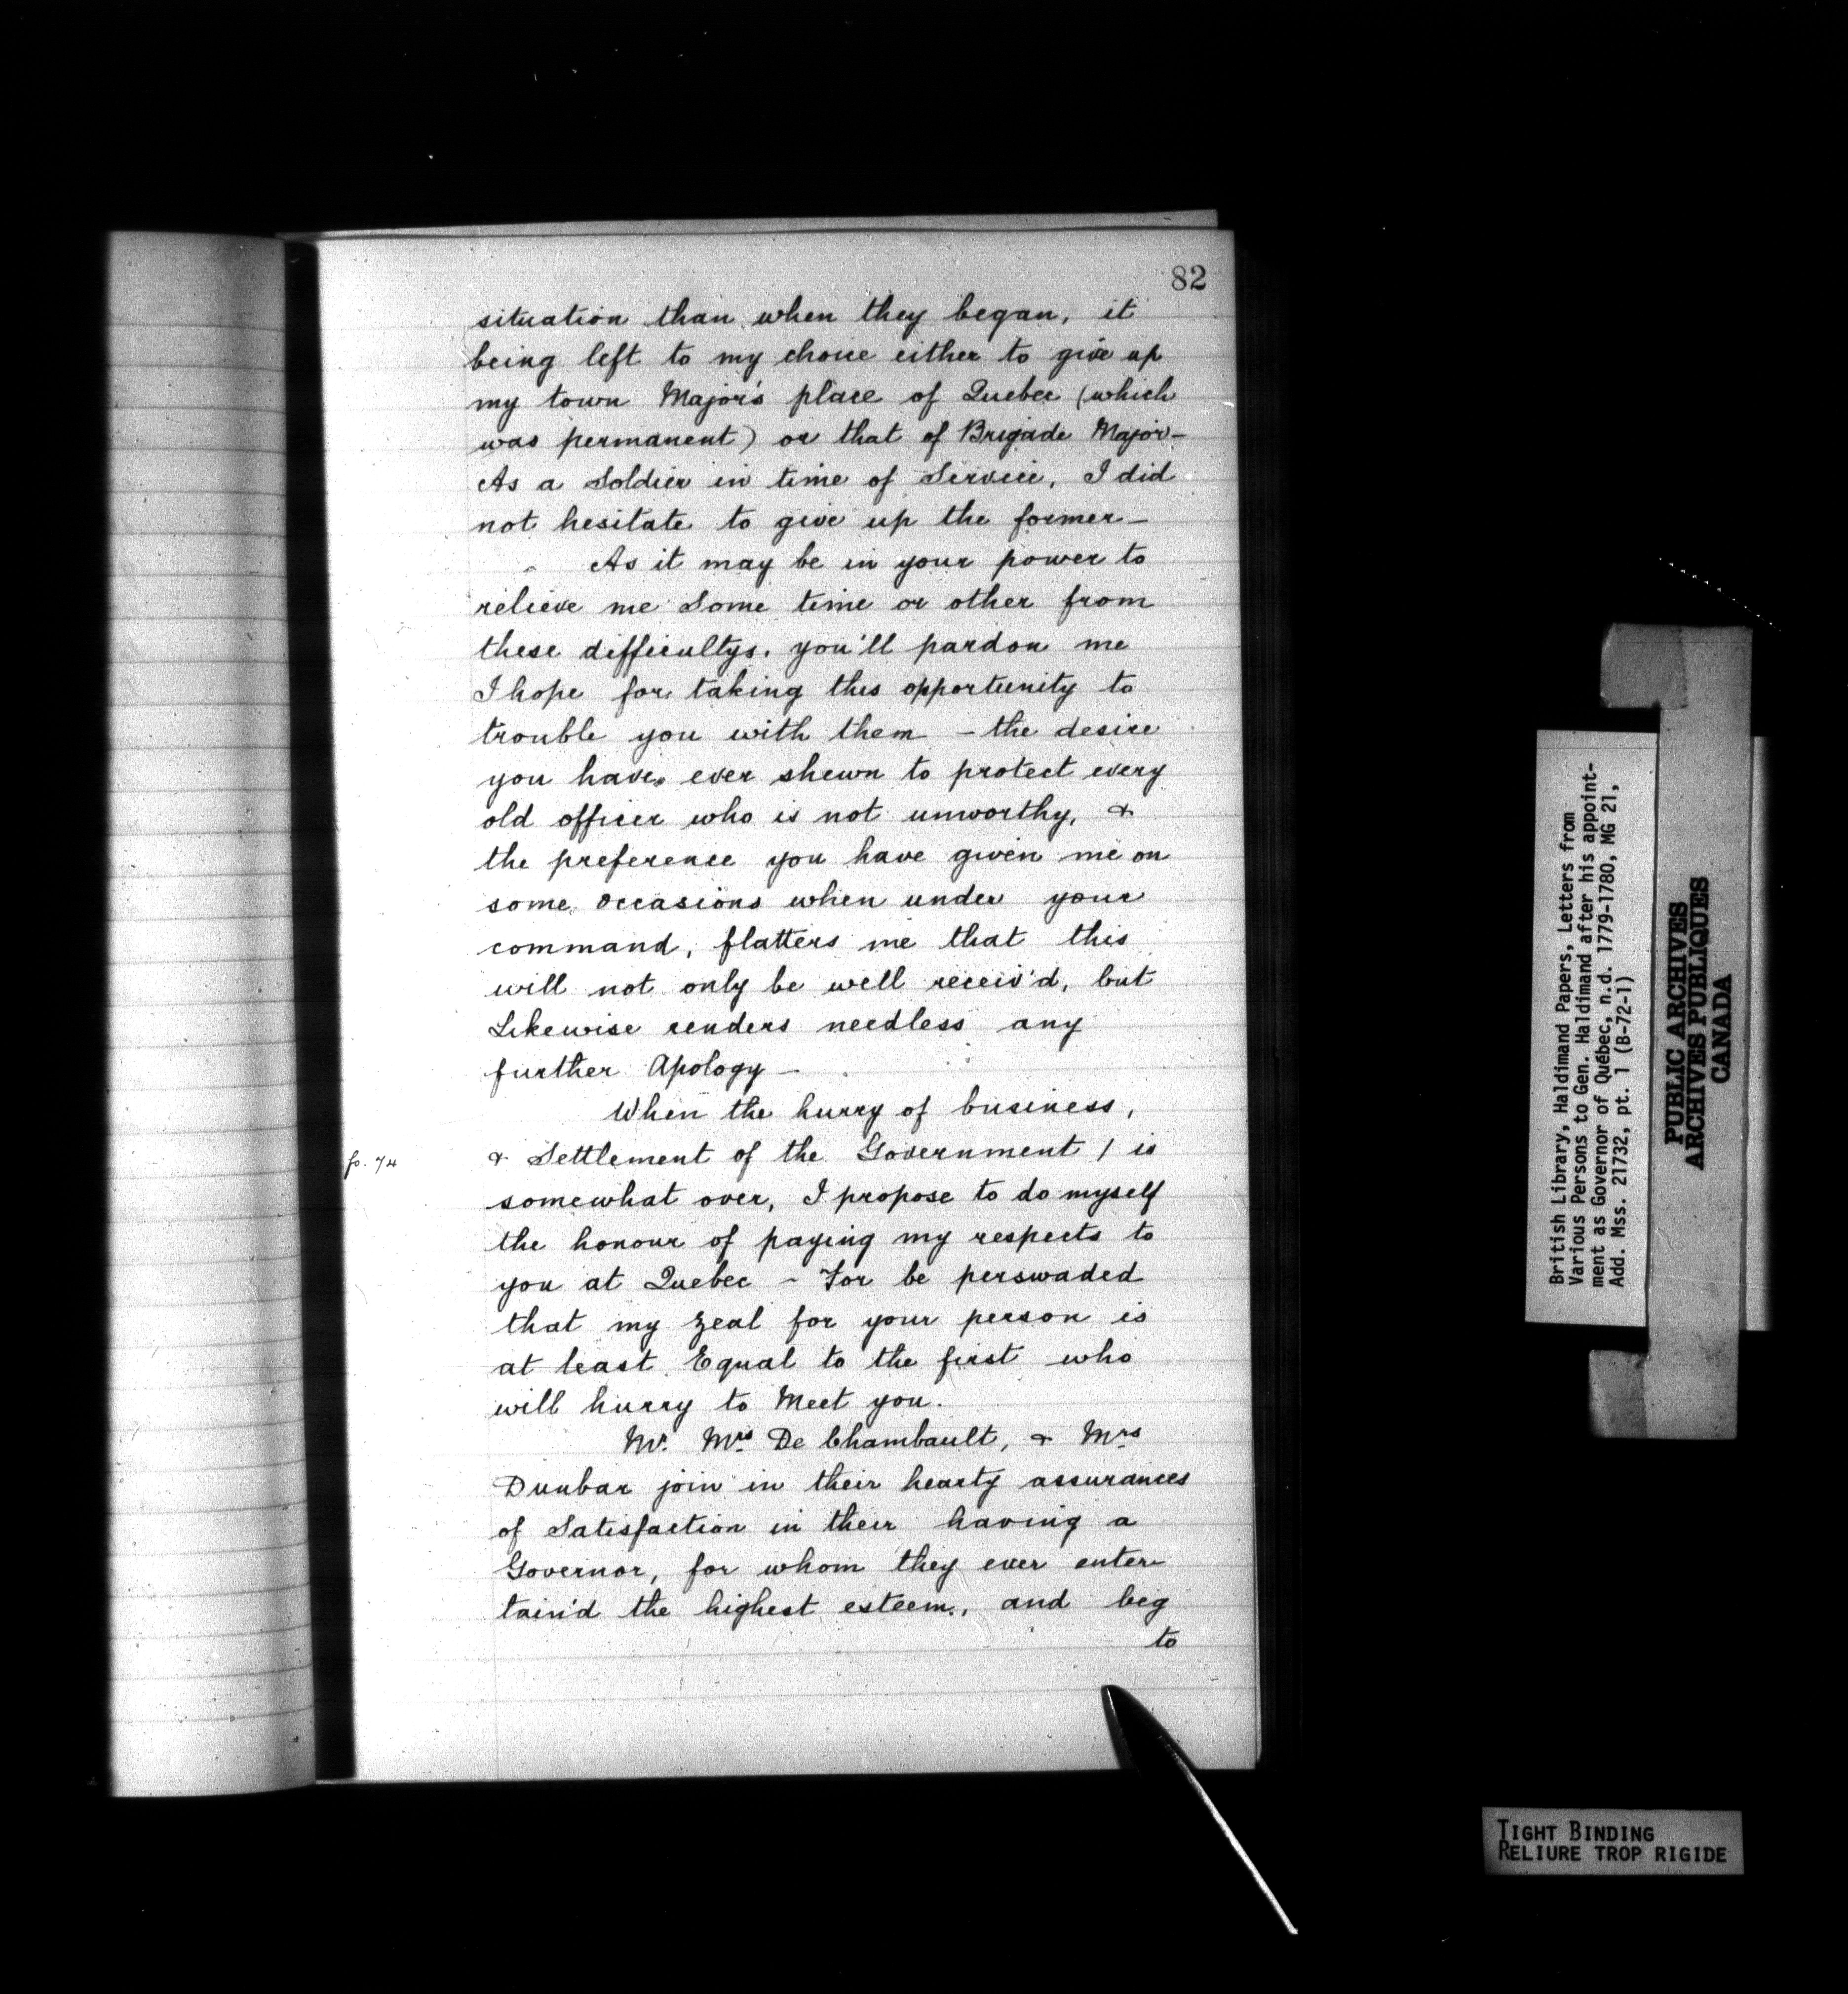 82
situation than when they began, it
being left to my choice either to give up
my town Major's place of Quebec (which
was permanent) or that of Brigade Major-
As a Soldier in time of Service, I did
not hesitate to give up the former-
As it may be in your power to
relieve me Some time or other from
these difficultys, you'll pardon me
I hope for taking this opportunity to
trouble you with them - the desire
you have ever shewn to protect every
old officer who is not unworthy, &
the preference you have given me on
some occasions when under your
command, flatters me that this
will not only be well receiv'd, but
Likewise renders needless any
further Apology -
When the hurry of business,
fo. 74
& Settlement of the Government / is
somewhat over, I propose to do myself
the honour of paying my respects to
you at Quebec - For be perswaded
that my zeal for your person is
at least Equal to the first who
will hurry to Meet you.
Mr. Mrs De Chambault, & Mrs
Dunbar join in their hearty assurances
of Satisfaction in their having a
Governor, for whom they ever enter-
tain'd the highest esteem, and beg
to
British Library, Haldimand Papers, Letters from
Various Persons to Gen. Haldimand after his appoint-
ment as Governor of Québec, n.d. 1779-1780, MG 21,
Add. Mss. 21732, pt. 1 (B-72-1)
PUBLIC ARCHIVES
ARCHIVES PUBLIQUES
CANADA
TIGHT BINDING
RELIURE TROP RIGIDE